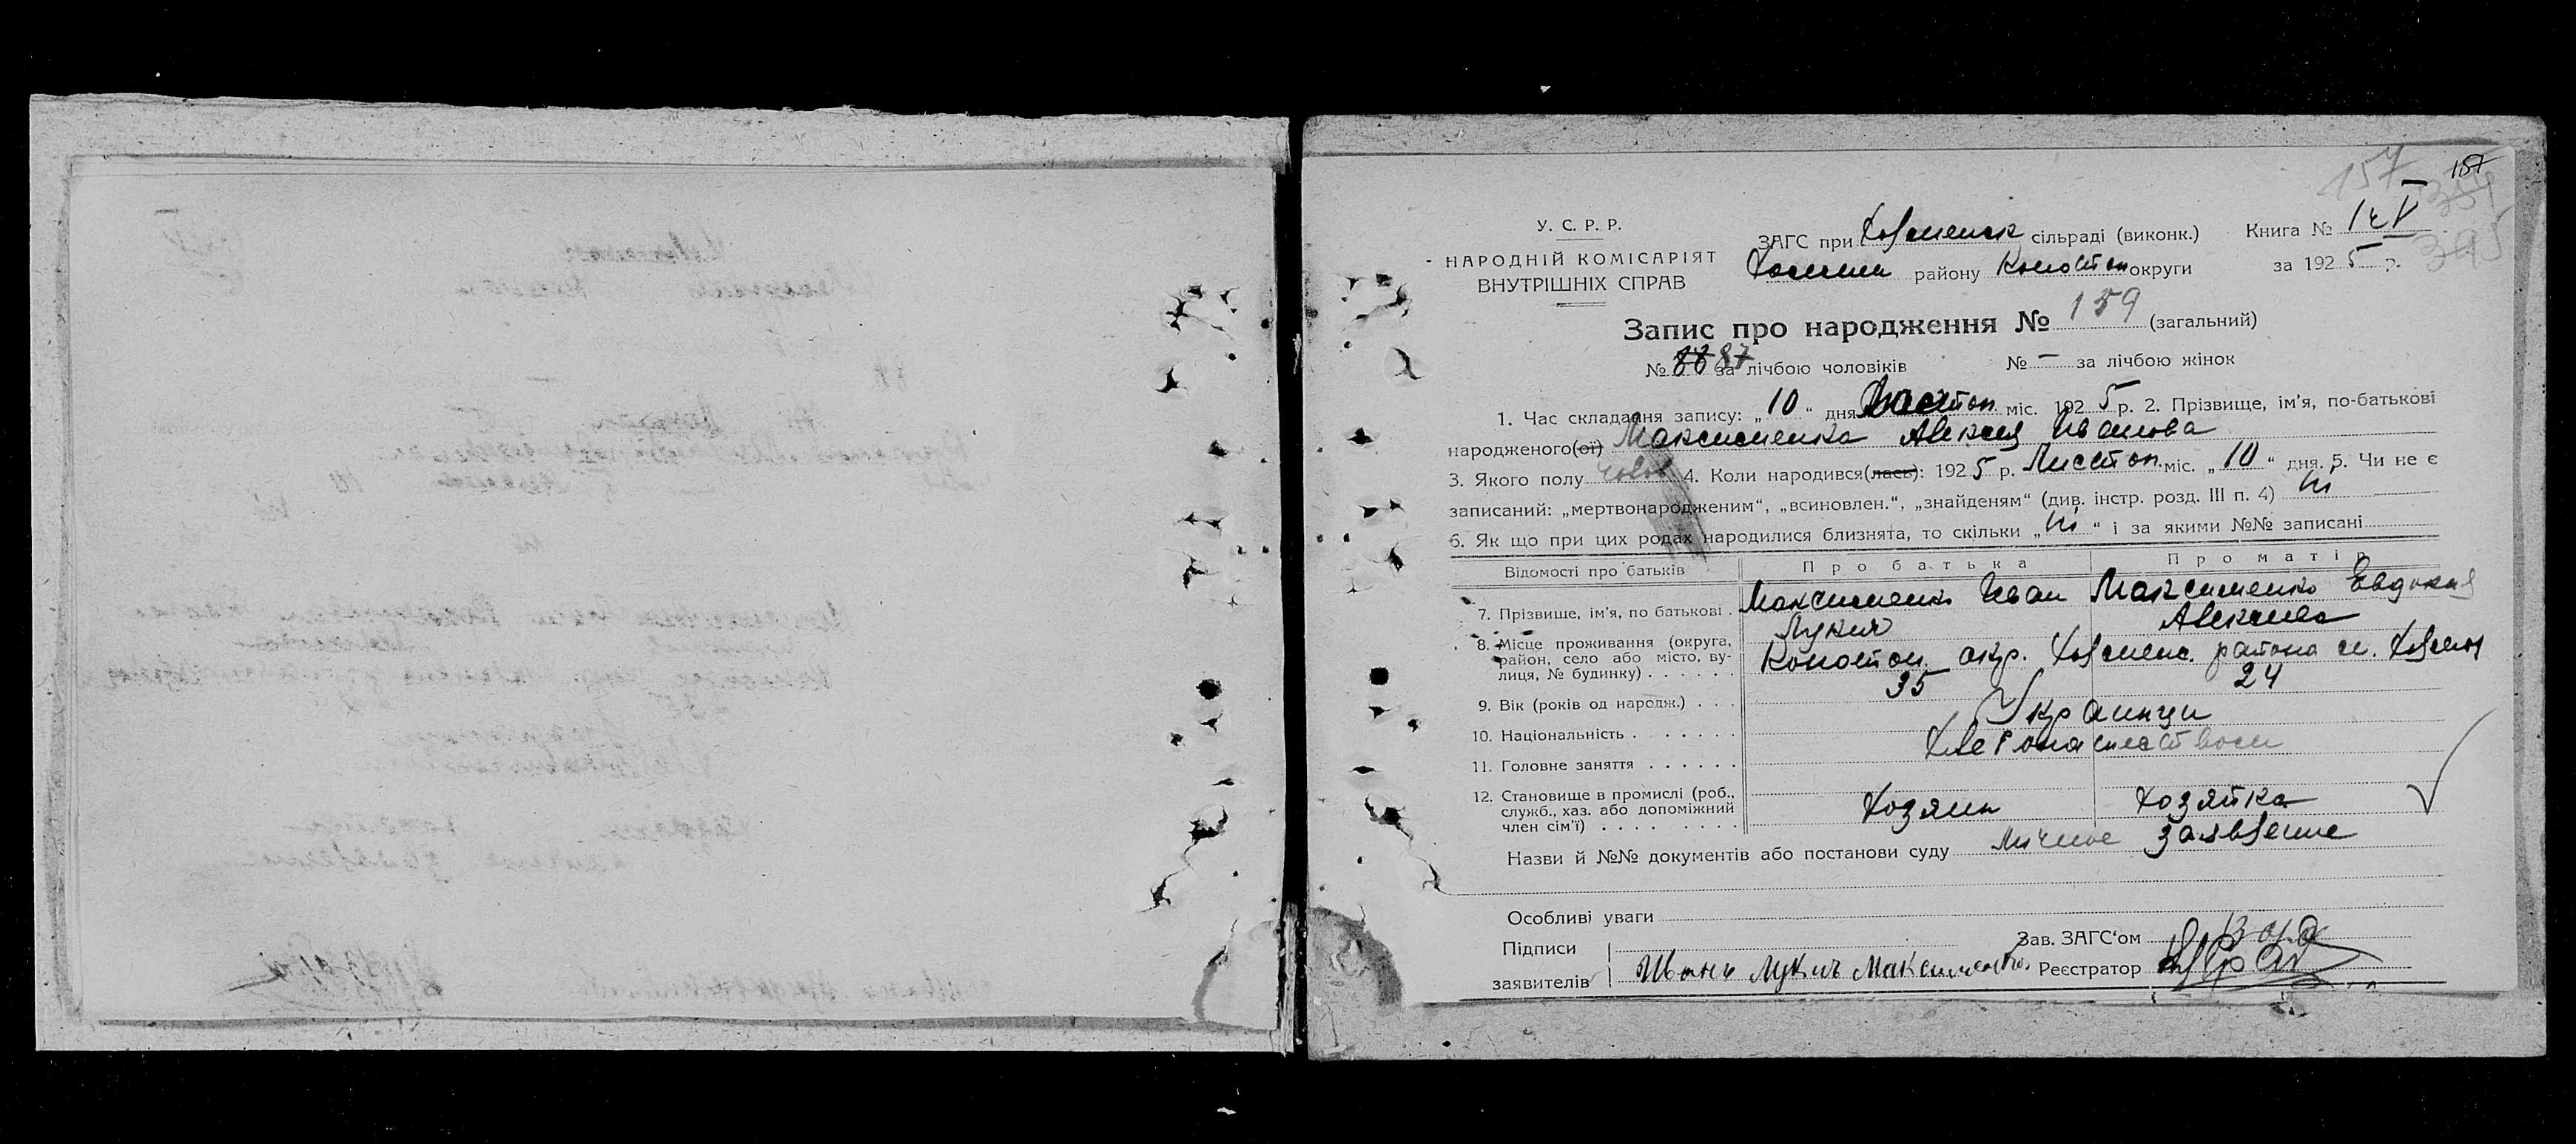 157
157
У. С. Р. Р.
НАРОДНІЙ КОМІСАРІЯТ
ВНУТРІШНІХ СПРАВ
ЗАГС при сільраді (виконк.) Книга №
району Конотоп округи за 1925 р.
Запис про народження № 159 (загальний)
№ 87 за лічбою чоловіків № — за лічбою жінок
1. Час складання запису: „10“ дня Листоп міс. 1925 р. 2. Прізвище, ім’я, по-батькові
народженого(ої) Максименка Алексея Иванова
3. Якого полу чолов 4. Коли народився(лась): 1925 р. Листоп міс. „10“ дня. 5. Чи не є
записаний: „мертвонародженим“, „всиновлен.“, „знайденям“ (див. інстр. розд. III п. 4) ні
6. Як що при цих родах народилися близнята, то скільки „ні“ і за якими №№ записані
Відомості про батьків Про батька Про матір
7. Прізвище, ім’я, по батькові. Максименко Иван Максименко Евдокия
Лукич Алексеева
8. Місце проживання (округа, район, село або місто, вулиця, № будинку) Конотоп. окр. района
9. Вік (років од народж.) 35 24
10. Національність Украинци
11. Головне заняття
12. Становище в промислі (роб., служб., хаз. або допоміжний член сім’ї) Хозяин Хозяйка
Назви й №№ документів або постанови суду Личное заявление
Особливі уваги
Підписи
заявителів Иван Лукич Максименко
Зав. ЗАГС‘ом
Реєстратор